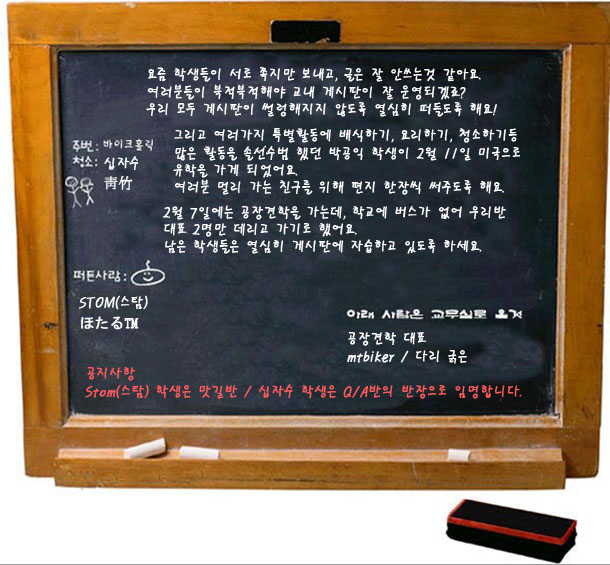 요즘 학생들이 서로 쪽지만 보내고, 글은 잘 안쓰는것 같아요.
여러분들이 북적북적해야 교내 게시판이 잘 운영되겠죠?
우리 모두 게시판이 썰렁해지지 않도록 열심히 떠들도록 해요!
그리고 여러가지 특별활동에 배식하기, 요리하기, 청소하기등
많은 활동을 솔선수범 했던 박공익 학생이 2월 11일 미국으로
유학을 가게 되었어요.
여러분 멀리 가는 친구를 위해 편지 한장씩 써주도록 해요.
2월 7일에는 공장견학을 가는데, 학교에 버스가 없어 우리반
대표 2명만 데리고 가기로 했어요.
남은 학생들은 열심히 게시판에 자습하고 있도록 하세요.
주번: 바이크홀릭
청소: 십자수
靑竹
떠든사람:
STOM(스탐)
ほたるTM
아래 사람은 교무실로 올것
공장견학 대표
mtbiker / 다리 굵은
공지사항
Stom(스탐) 학생은 맛길반 / 십자수 학생은 Q/A반의 반장으로 임명합니다.